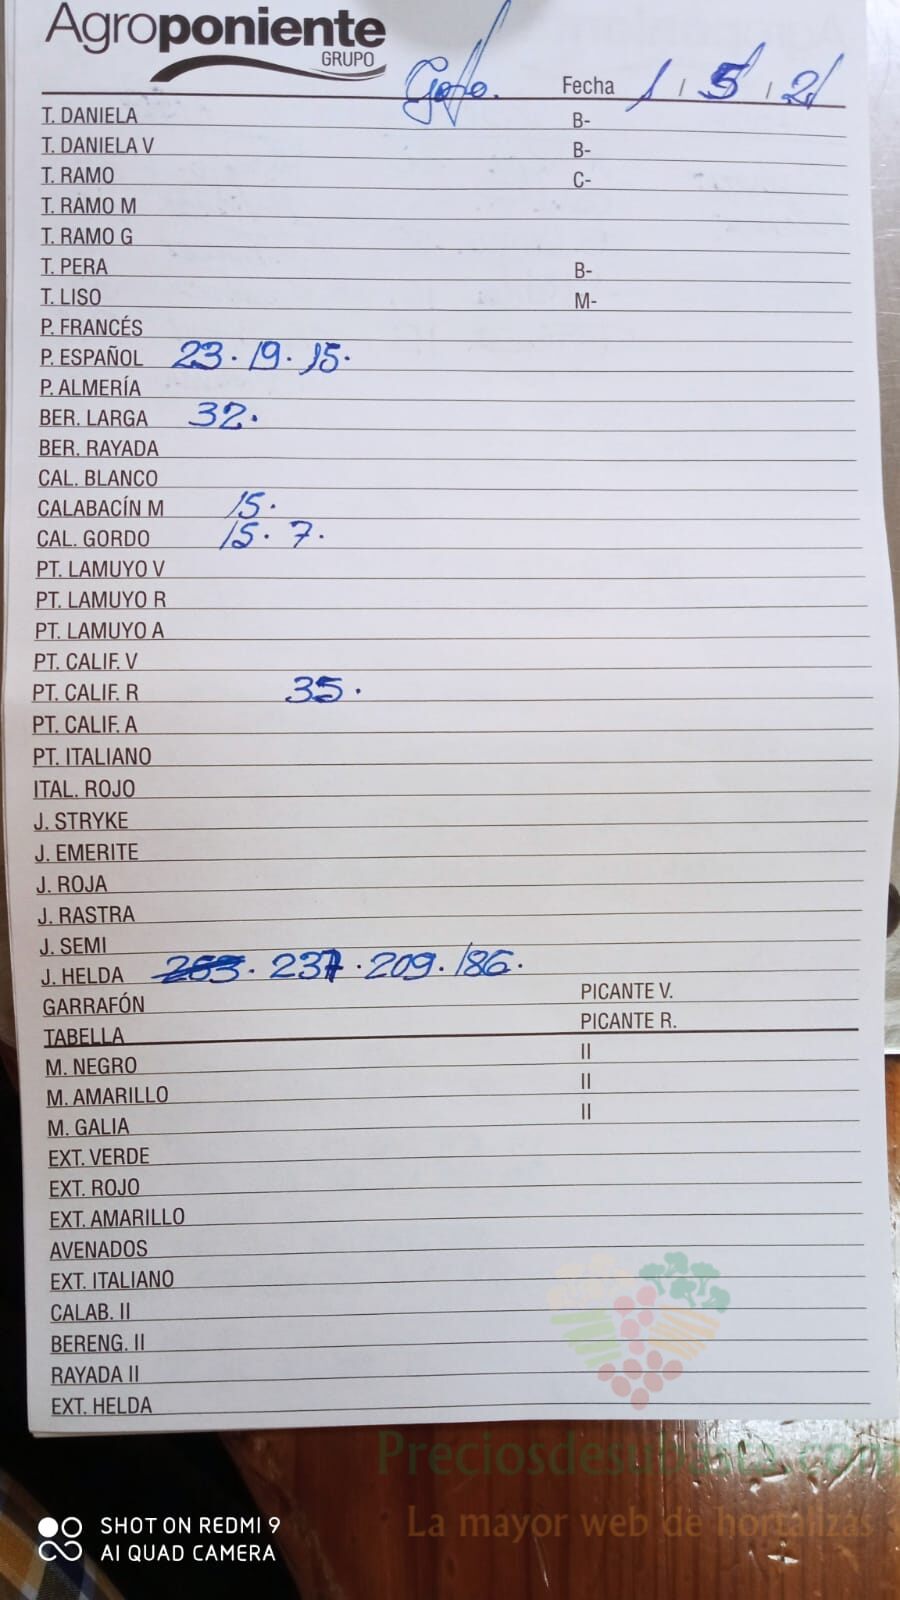 Agroponiente
GRUPO
Fecha 1 / 5 / 21
T. DANIELA B-
T. DANIELA V B-
T. RAMO C-
T. RAMO M
T. RAMO G
T. PERA B-
T. LISO M-
P. FRANCÉS
P. ESPAÑOL 23. 19. 15.
P. ALMERÍA
BER. LARGA 32.
BER. RAYADA
CAL. BLANCO
CALABACÍN M 15.
CAL. GORDO 15. 7.
PT. LAMUYO V
PT. LAMUYO R
PT. LAMUYO A
PT. CALIF. V
PT. CALIF. R 35.
PT. CALIF. A
PT. ITALIANO
ITAL. ROJO
J. STRYKE
J. EMERITE
J. ROJA
J. RASTRA
J. SEMI
J. HELDA 237. 209. 186.
GARRAFÓN PICANTE V.
TABELLA PICANTE R.
M. NEGRO II
M. AMARILLO II
M. GALIA II
EXT. VERDE
EXT. ROJO
EXT. AMARILLO
AVENADOS
EXT. ITALIANO
CALAB. II
BERENG. II
RAYADA II
EXT. HELDA
Preciosdesubasta.com
La mayor web de hortalizas
SHOT ON REDMI 9
AI QUAD CAMERA